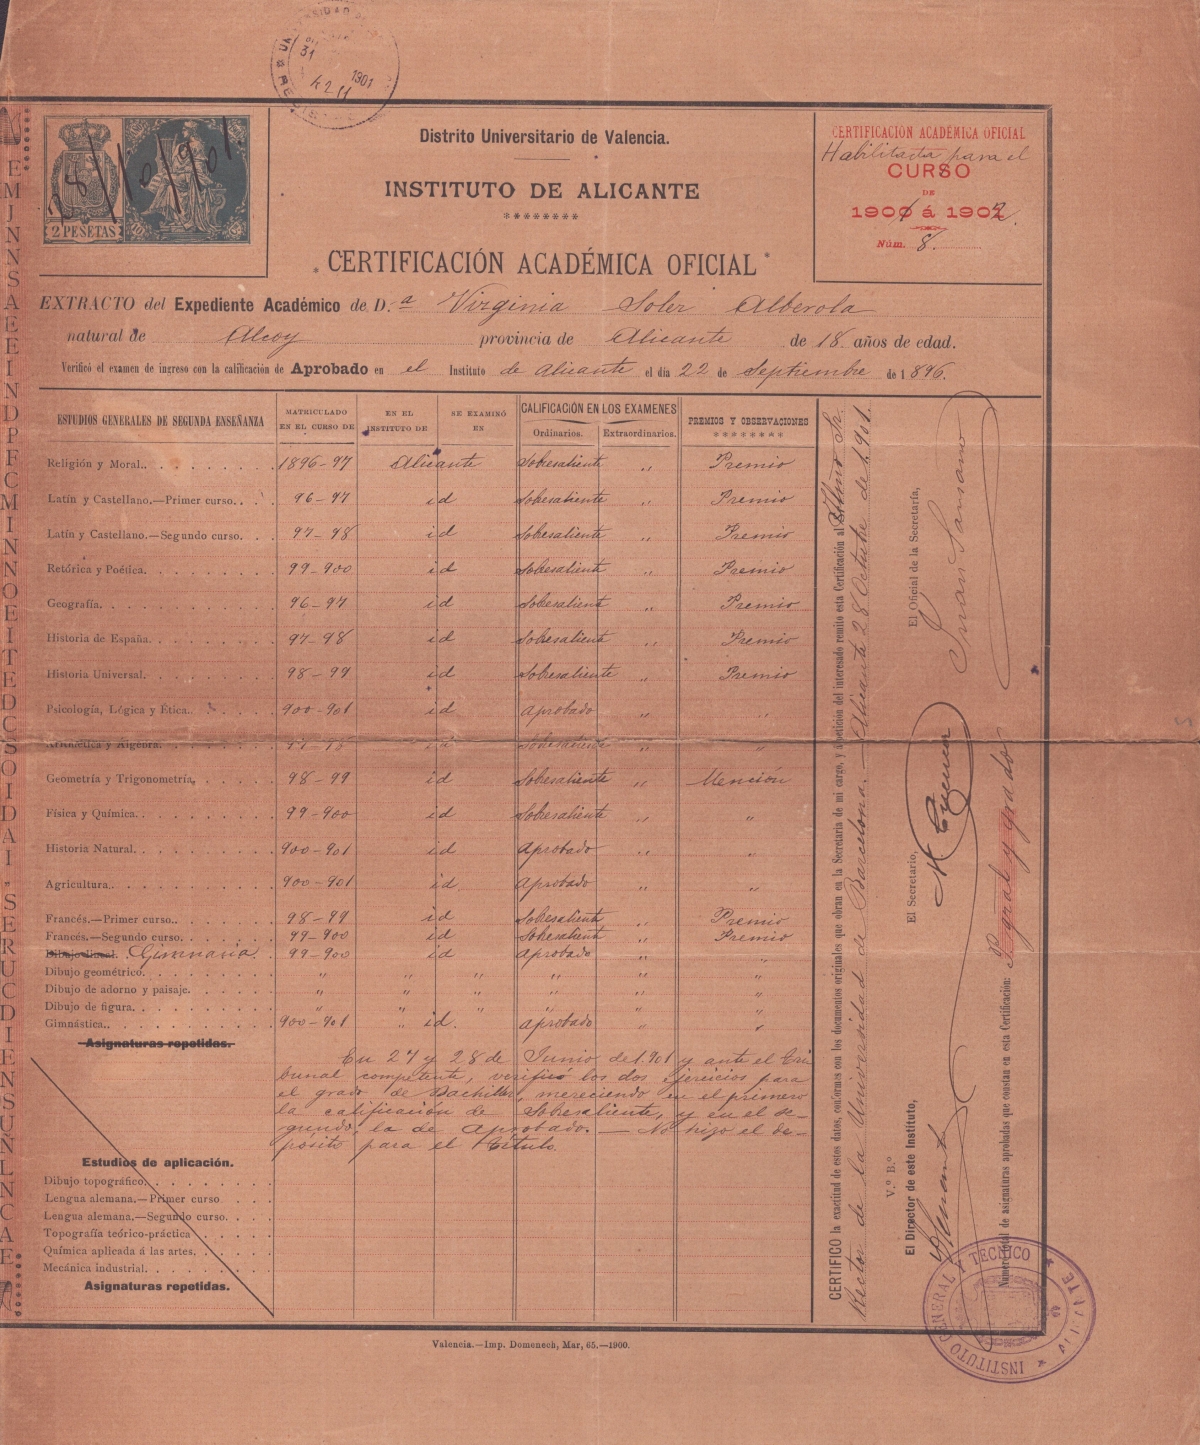 31
1901
4211
28/10/901.
2 PESETAS
Distrito Universitario de Valencia.
INSTITUTO DE ALICANTE
********
CERTIFICACIÓN ACADÉMICA OFICIAL
CERTIFICACIÓN ACADÉMICA OFICIAL
Habilitada para el
CURSO
DE
1901 á 1902.
Núm. 8.
EXTRACTO del Expediente Académico de D.a Virginia Soler Alberola
natural de Alcoy provincia de Alicante de 18 años de edad.
Verificó el examen de ingreso con la calificación de Aprobado en el Instituto de Alicante el día 22 de Septiembre de 1896.
ESTUDIOS GENERALES DE SEGUNDA ENSEÑANZA MATRICULADO EN EL CURSO DE EN EL INSTITUTO DE SE EXAMINÓ EN CALIFICACIÓN EN LOS EXÁMENES Ordinarios. Extraordinarios. PREMIOS Y OBSERVACIONES ********
Religión y Moral. 1896-97 Alicante Sobresaliente " Premio
Latín y Castellano.—Primer curso. 96-97 id Sobresaliente " Premio
Latín y Castellano.—Segundo curso. 97-98 id Sobresaliente " Premio
Retórica y Poética. 99-900 id Sobresaliente " Premio
Geografía. 96-97 id Sobresaliente " Premio
Historia de España. 97-98 id Sobresaliente " Premio
Historia Universal. 98-99 id Sobresaliente " Premio
Psicología, Lógica y Ética. 900-901 id Aprobado " "
Aritmética y Álgebra. 97-98 id Sobresaliente " "
Geometría y Trigonometría. 98-99 id Sobresaliente " Mención
Física y Química. 99-900 id Sobresaliente " "
Historia Natural. 900-901 id Aprobado " "
Agricultura. 900-901 id Aprobado " "
Francés.—Primer curso. 98-99 id Sobresaliente " Premio
Francés.—Segundo curso. 99-900 id Sobresaliente " Premio
Dibujo lineal. Gimnasia 99-900 id Aprobado " "
Dibujo geométrico. " " " " " "
Dibujo de adorno y paisaje. " " " " " "
Dibujo de figura. " " " " " "
Gimnástica. 900-901 " id. Aprobado " "
Asignaturas repetidas.
En 27 y 28 de Junio de 1.901 y ante el Tri
bunal competente, verificó los dos ejercicios para
el grado de Bachiller, mereciendo en el primero
la calificación de Sobresaliente, y en el se-
gundo, la de Aprobado. — No hizo el de-
pósito para el Título.
Estudios de aplicación.
Dibujo topográfico.
Lengua alemana.—Primer curso
Lengua alemana.—Segundo curso.
Topografía teórico-práctica
Química aplicada á las artes.
Mecánica industrial.
Asignaturas repetidas.
CERTIFICO la exactitud de estos datos, conformes con los documentos originales que obran en la Secretaría de mi cargo, y á petición del interesado remito esta Certificación al Iltmo Sr.
Rector de la Universidad de Barcelona.— Alicante 28 Octubre de 1,901.
V.º B.º
El Director de este Instituto,
El Secretario,
El Oficial de la Secretaría,
Juan Sansano
Número total de asignaturas aprobadas que constan en esta Certificación: gral y grado
INSTITUTO GENERAL Y TECNICO * ALICANTE *
Valencia.—Imp. Domenech, Mar, 65.—1900.